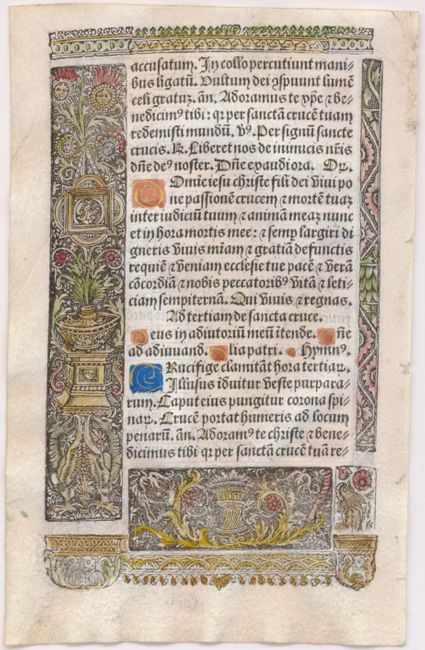 accusatum. In collo percutiunt mani
bus ligatū. Vultum dei ꝯspuunt lumē
celi gratuʒ. an̄. Adoramus te xp̄e ⁊ be-
nedicimꝰ tibi: qꝛ per sanctā crucē tuam
redemisti mundū. v̄ꝰ. Per signū sancte
crucis. R̄. Liberet nos de inimicis nr̄is
dn̄e deꝰ noster. Dn̄e exaudi ora. Or̄.
Domine iesu christe fili dei viui po
ne passionē crucem ⁊ mortē tuaʒ
inter iudiciū tuum ⁊ animā meaʒ nunc
et in hora mortis mee: ⁊ semꝑ largiri di
gneris viuis miaʒ ⁊ gratiā defunctis
requiē ⁊ veniam ecclesie tue pacē ⁊ verā
cōcordiā ⁊ nobis peccatoribꝰ vitā ⁊ leti-
ciam sempiternā. Qui viuis ⁊ regnas.
Ad tertiam de sancta cruce.
Deus in adiutoriū meū itende. Dn̄e
ad adiuuand. Glia patri. Hymnꝰ.
Crucifige clamitāt hora tertiaꝝ.
Illusus iduitur veste purpura-
rum. Caput eius pungitur corona spi
naꝝ. Crucē portat humeris ad locum
penarū. an̄. Adoramꝰ te christe ⁊ bene-
dicimus tibi qꝛ per sanctā crucē tuā re-